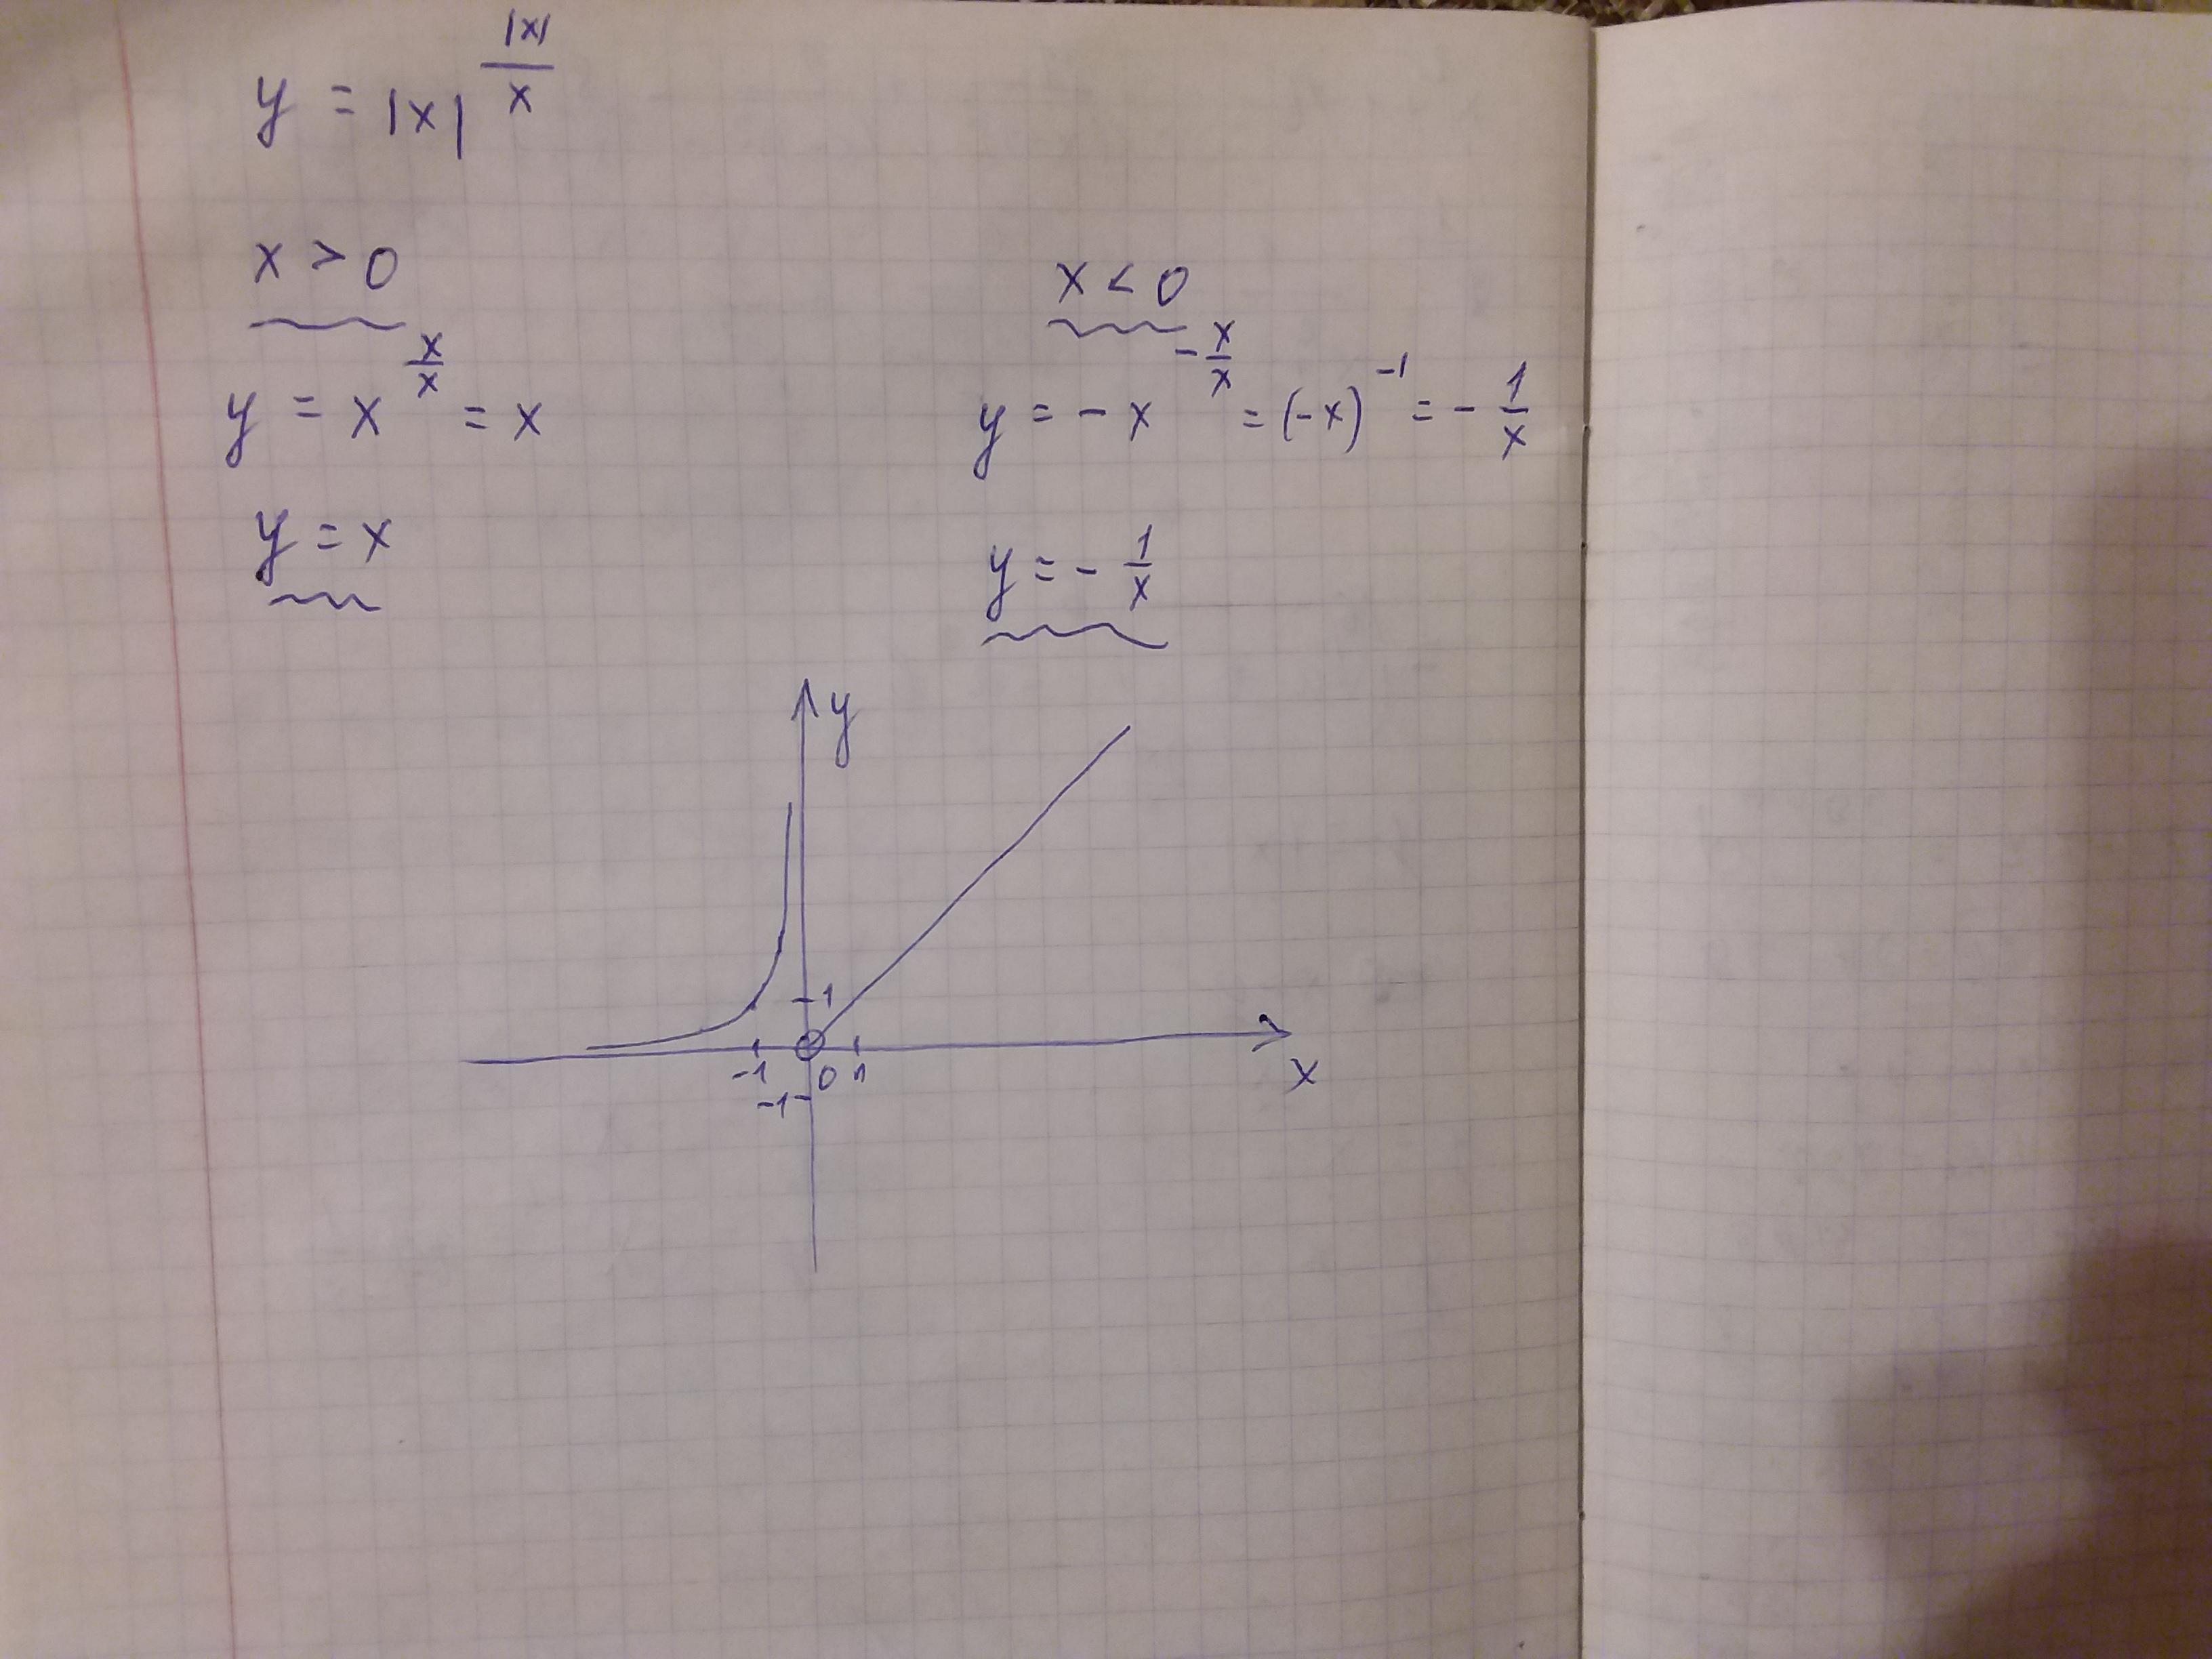 y = |x|^(|x|/x)
x > 0
y = x^(x/x) = x
y = x
x < 0
y = - x^(-x/x) = (-x)^(-1) = - 1/x
y = - 1/x
y
1
-1 0 1
x
-1